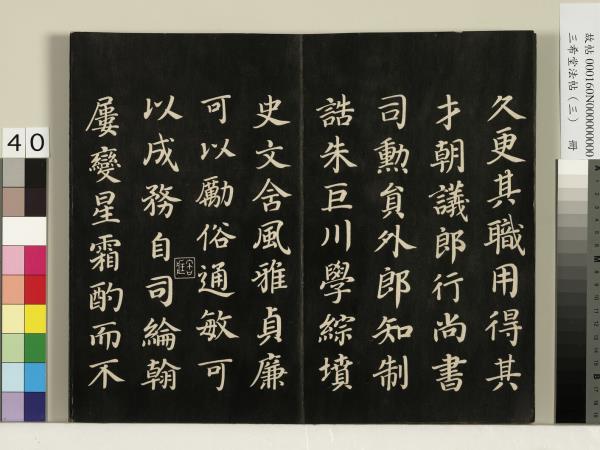 久更其職用得其
才朝議郎行尚書
司勳員外郎知制
誥朱巨川學綜墳
史文含風雅貞廉
可以勵俗通敏可
以成務自司綸翰
屢變星霜酌而不
故帖 000160N000000000
三希堂法帖(三) 冊
40
A
M
B